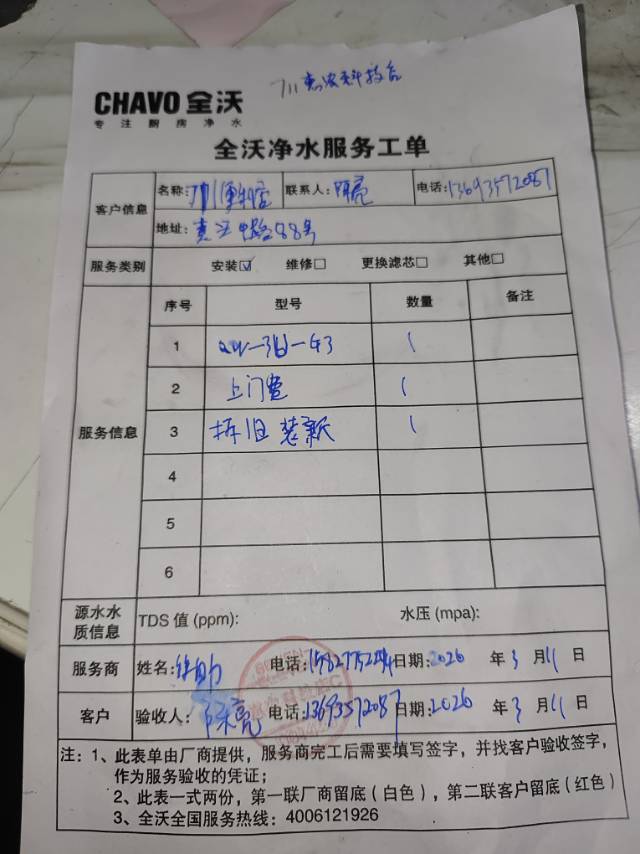 711惠波科技店
CHAVO 全沃
专注厨房净水
全沃净水服务工单
客户信息 名称:711便利店 联系人:陈亮 电话:13693572087
地址: 88号
服务类别 安装☑ 维修□ 更换滤芯□ 其他□
服务信息 序号 型号 数量 备注
1 1
2 上门费 1
3 拆旧装新 1
4
5
6
源水水质信息 TDS 值 (ppm): 水压 (mpa):
服务商 姓名: 电话: 日期:2026 年 3 月 11 日
客户 验收人:陈亮 电话:13693572087 日期:2026 年 3 月 11 日
注:1、此表单由厂商提供，服务商完工后需要填写签字，并找客户验收签字，
作为服务验收的凭证；
2、此表一式两份，第一联厂商留底（白色），第二联客户留底（红色）
3、全沃全国服务热线：4006121926